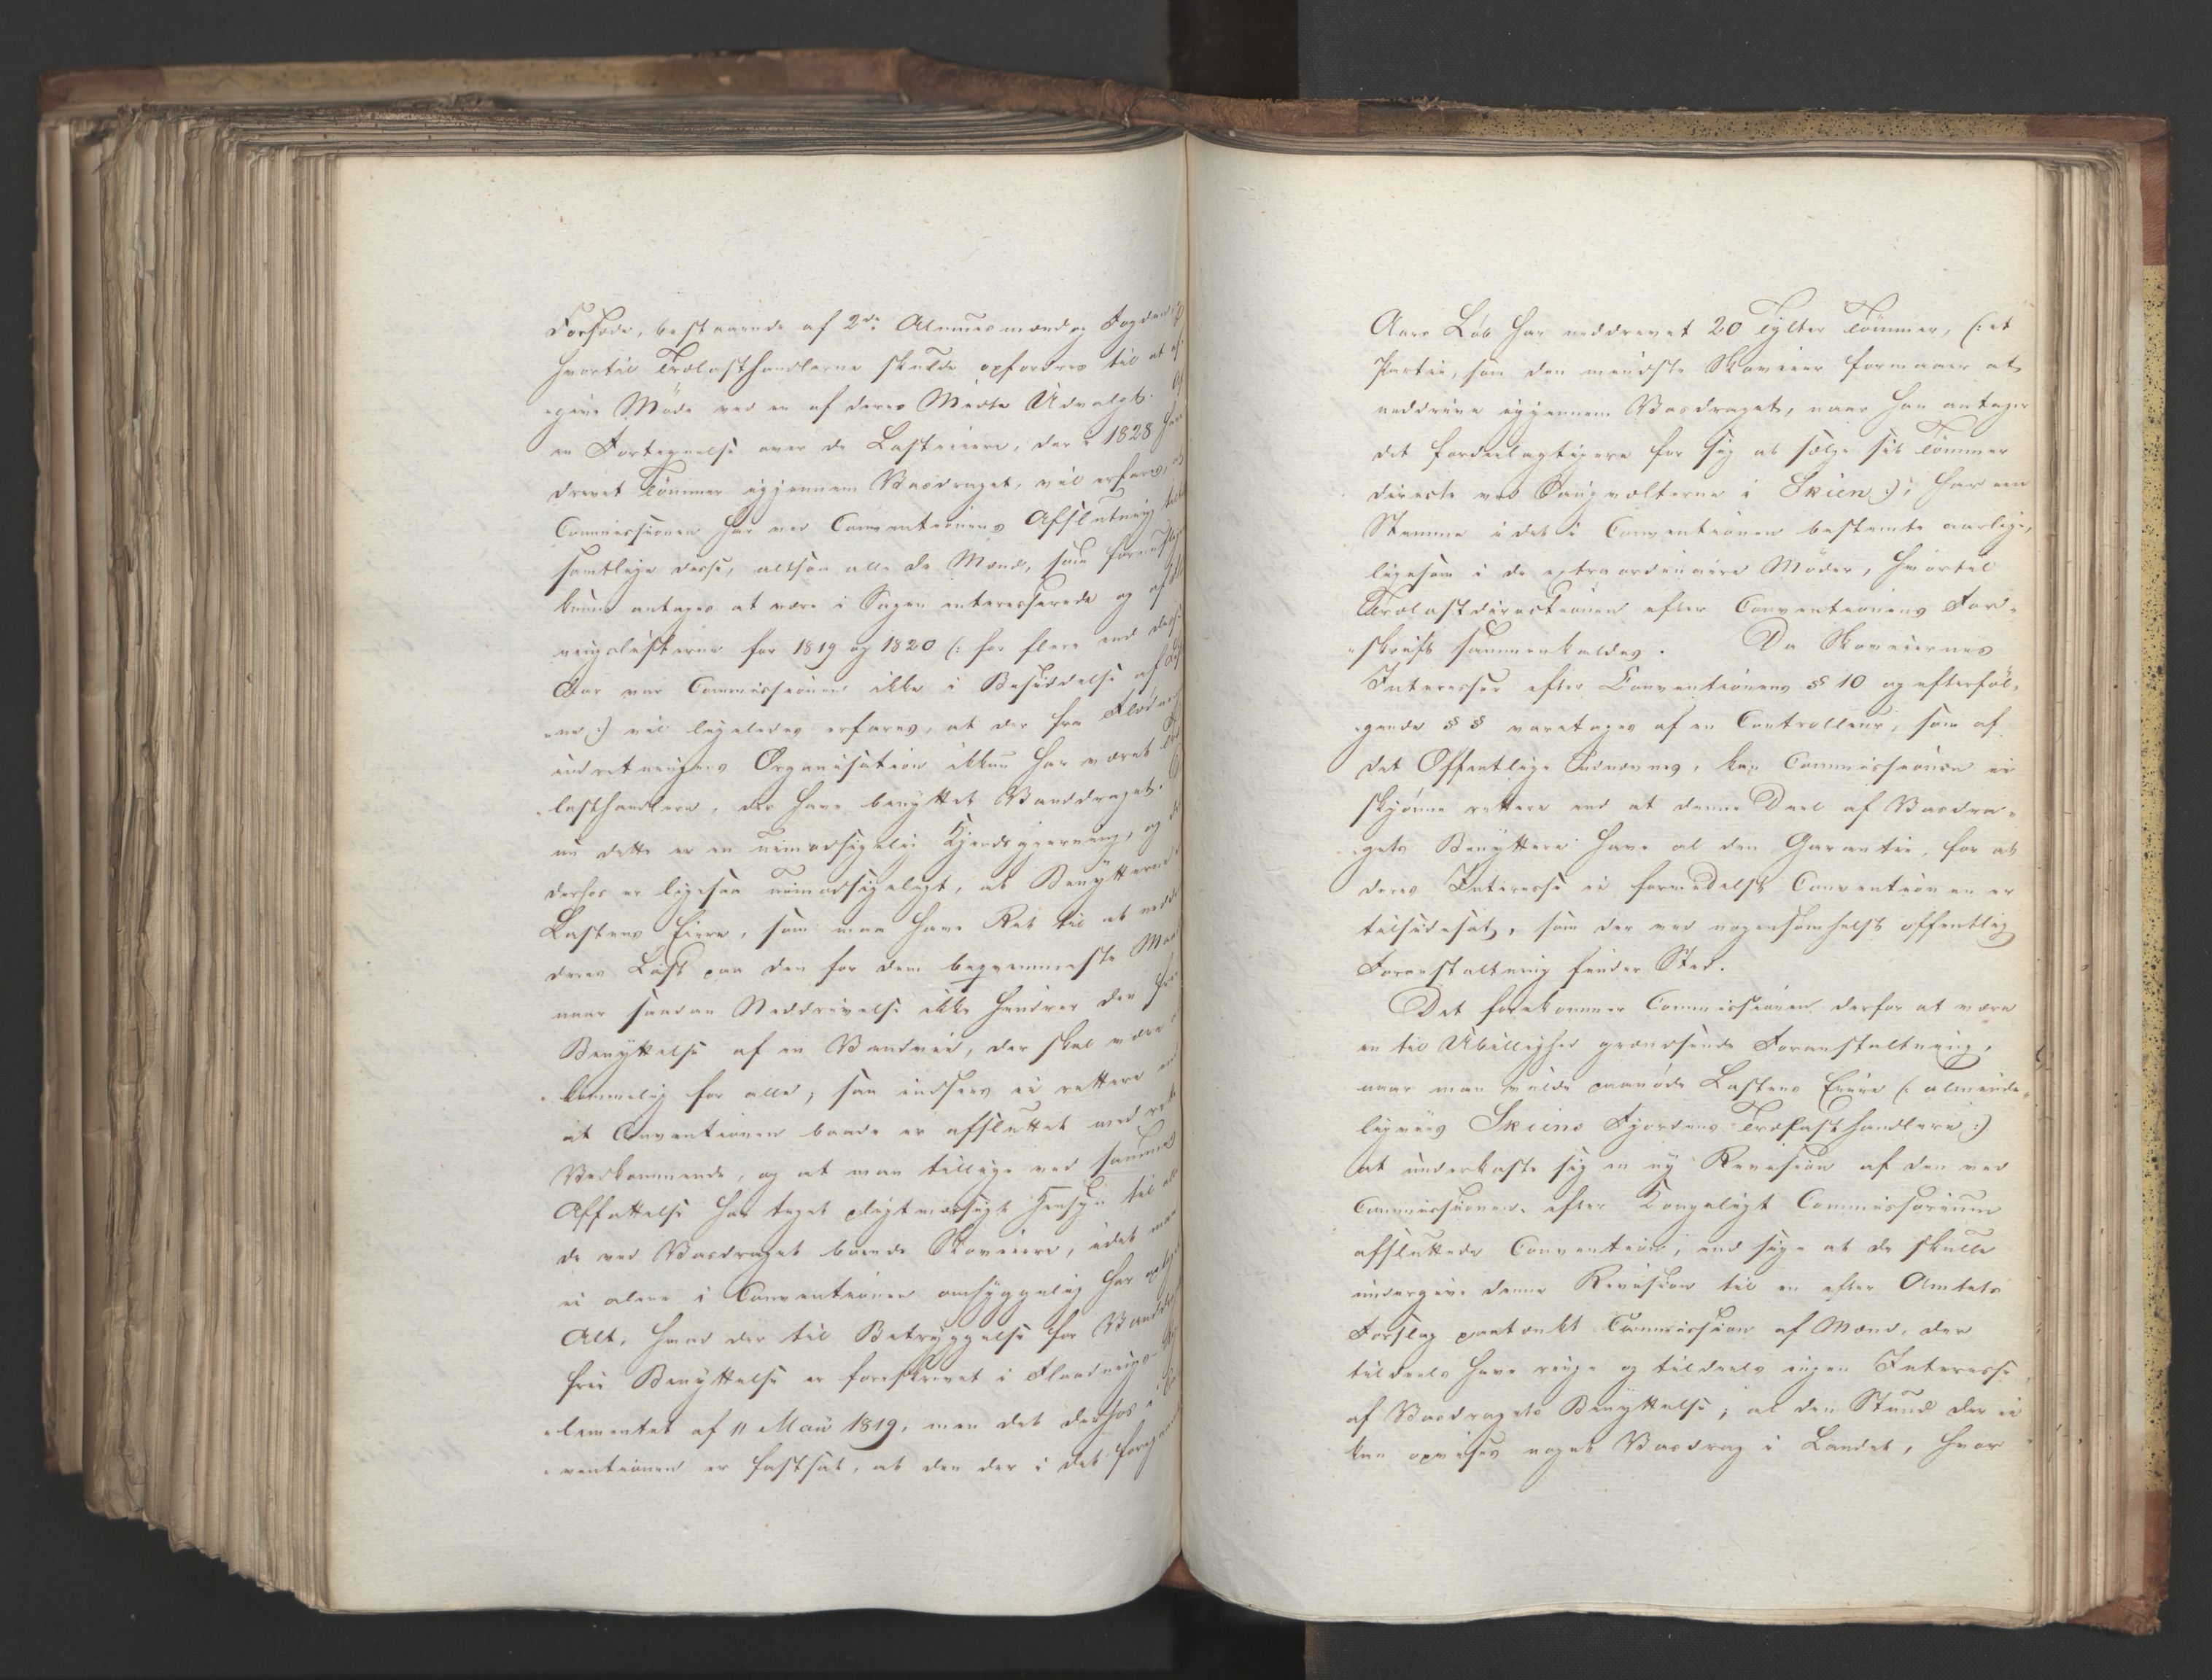 Forsæde, bestaaende af 2de Almuesmænd og Fogden,
hvortil Trælasthandlerne skulde opfordres til at af¬
„give Møde ved en af deres Midte Udvalgt. Af
en Fortegnelse over de Lasteiere, der i 1828 har
drevet Tømmer igjennem Vasdraget, vil erfares, at
Commissionen har ved Conventionens Afslutning
samtlige disse, altsaa alle de Mænd, som fornuftig
kunne antages at være i Sagen interesserede og af
ningslisterne for 1819 og 1820 (: for flere end disse
Aar var Commissionen ikke i Besiddelse af
„ne :) vil ligeledes erfares, at der fra Flød
indretningens Organisation ikkun har været Træ
„lasthandlere, der have benyttet Vanddraget.
nu dette er en uimodsigelig Kjendsgjerning, og
derhos er ligesaa uimodsigeligt, at Benytterne
Lastens Eiere, som maa have Ret til at nedd
deres Last paa den for dem beqvemmeste Maa
naar saadan Neddrivelse ikke hindrer den fri
Benyttelse af en Vandvei, der skal være
„kommelig for alle; saa indsees ei rettere end
at Conventionen baade er afsluttet med rette
Vedkommende, og at man tillige ved sammes
Affattelse har taget pligtmæssigt Hensyn til alle
de ved Vasdraget boende Skoveiere, idet man
ei alene i Conventionen omhyggelig har optaget
Alt, hvad der til Betryggelse for Vanddr
frie Benyttelse er foreskrevet i Flaadnings-
„lementet af 11 Maii 1819, men det derhos i
„ventionen er fastsat, at den der i det foregaa
Aars Løb har neddrevet 20 Tylter Tømmer, (: et
Partie, som den mindste Skoveier formaaer at
neddrive igjennem Vasdraget, naar han antager
det fordeelagtigere for sig at sælge sit Tømmer
directe ved Saugvælterne i Skien :); har een
Stemme i det i Conventionen bestemte aarlige,
ligesom i de extraordinaire Møder, hvortil
Trælastdirectionen efter Conventionens For„
„skrift sammenkaldes. Da Skoveiernes
Interesser efter Conventionens §§ 10 og efterføl„
„gende §§ varetages af en Controlleur, som af
det Offentlige udnævnes, kan Commissionen ei
skjønne rettere end at denne Deel af Vasdra„
„gets Benyttere have al den Garantie, for at
deres Interesse ei formedelst Conventionen er
tilsidesat, som der ved nogensomhelst offentlig
Foranstaltning finder Sted.
Det forekommer Commissionen derfor at være
en til Ubillighed grændsende Foranstaltning,
naar man vilde paanøde Lastens Eiere (: alminde„
ligviis Skiens Fjordens Trælasthandlere :)
at underkaste sig en ny Revision af den ved
Commissionen, efter Kongeligt Commissorium
afsluttede Convention, end sige at de skulle
undergive denne Revision til en efter Amtets
Forslag paatænkt Commission af Mænd, der
tildeels have ringe og tildeels ingen Interesse
af Vasdragets Benyttelse; al den Stund der ei
kan opvises noget Vasdrag i Landet, hvor